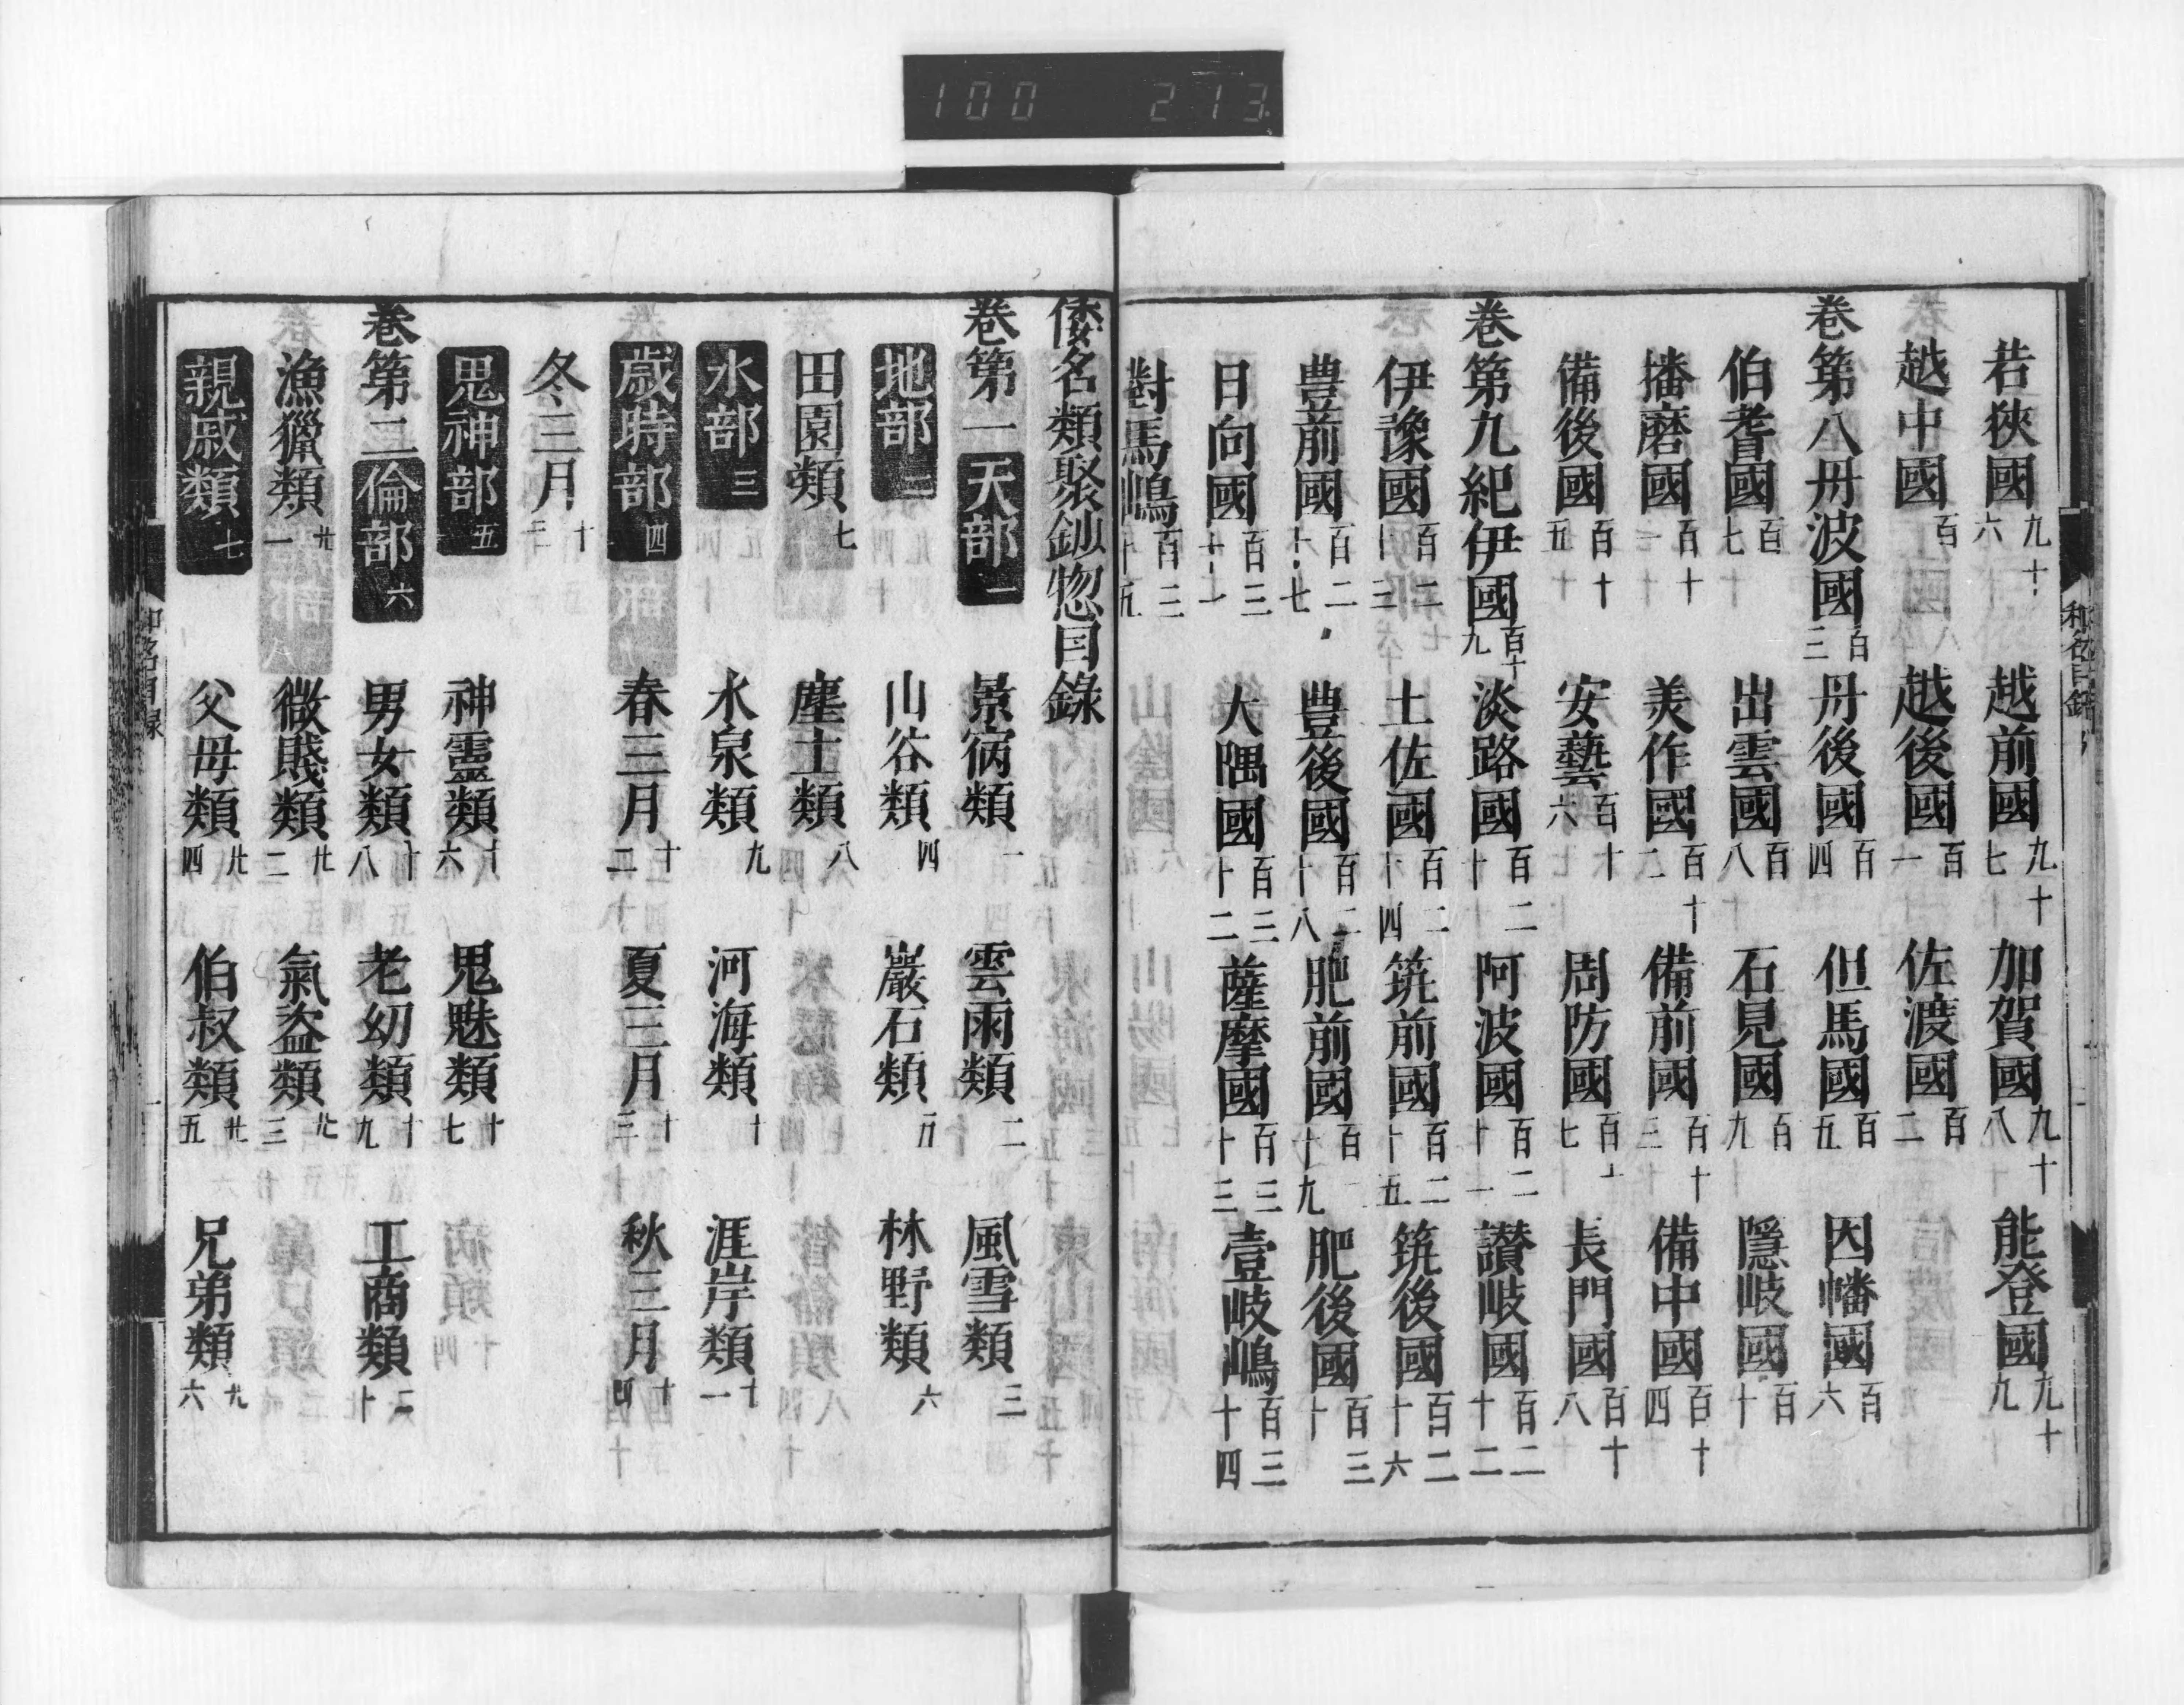 100 213
若狹國 九十六 越前國 九十七 加賀國 九十八 能登國 九十九
越中國 百 越後國 百一 佐渡國 百二
卷第八丹波國 百三 丹後國 百四 但馬國 百五 因幡國 百六
伯耆國 百七 出雲國 百八 石見國 百九 隱岐國 百十
播磨國 百十一 美作國 百十二 備前國 百十三 備中國 百十四
備後國 百十五 安藝 百十六 周防國 百十七 長門國 百十八
卷第九紀伊國 百十九 淡路國 百二十 阿波國 百二十一 讃岐國 百二十二
伊豫國 百二十三 土佐國 百二十四 筑前國 百二十五 筑後國 百二十六
豊前國 百二十七 豊後國 百二十八 肥前國 百二十九 肥後國 百三十
日向國 百三十一 大隅國 百三十二 薩摩國 百三十三 壹岐嶋 百三十四
對馬嶋 百三十五
倭名類聚鈔惣目錄
卷第一天部一 景宿類 一 雲雨類 二 風雪類 三
地部二 山谷類 四 巖石類 五 林野類 六
田園類 七 塵土類 八
水部三 水泉類 九 河海類 十 涯岸類 十一
歳時部四 春三月 十二 夏三月 十三 秋三月 十四
冬三月 十
鬼神部五 神靈類 十六 鬼魅類 十七
卷第二倫部六 男女類 十八 老幼類 十九 工商類 二十
漁獵類 廿一 微賤類 廿二 氣盗類 廿三
親戚類七 父母類 廿四 伯叔類 廿五 兄弟類 廿六
和名目録